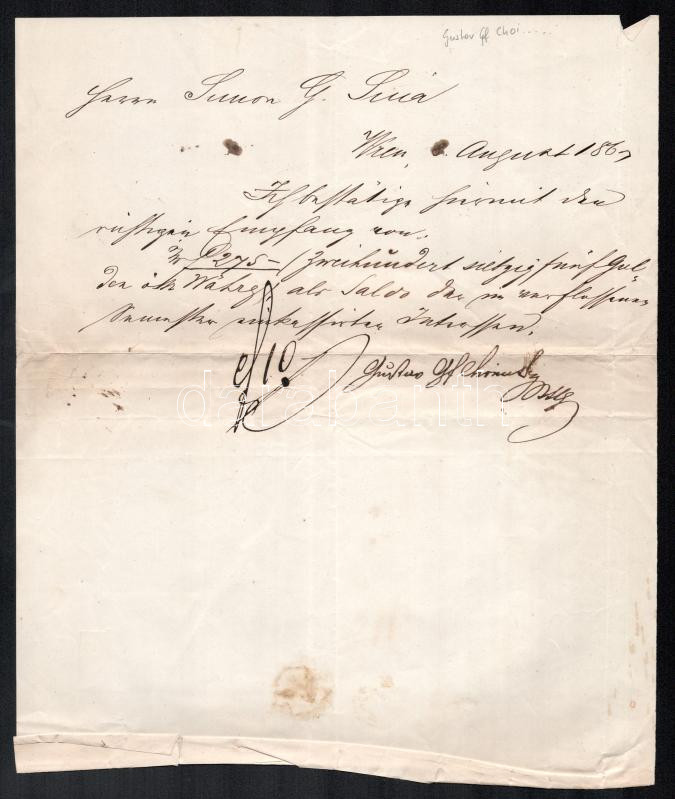 Gustav Gf Choi.....
Herrn Simon G. Sina
Wien, August 1867
Ich bestätige hiermit den
richtigen Empfang von
f 275 – (Zweihundert siebzig fünf Gul-
den öst Währg) als Saldo der im verflossenen
Semester einkassirten Intressen.
Gustav Gf
darabanth